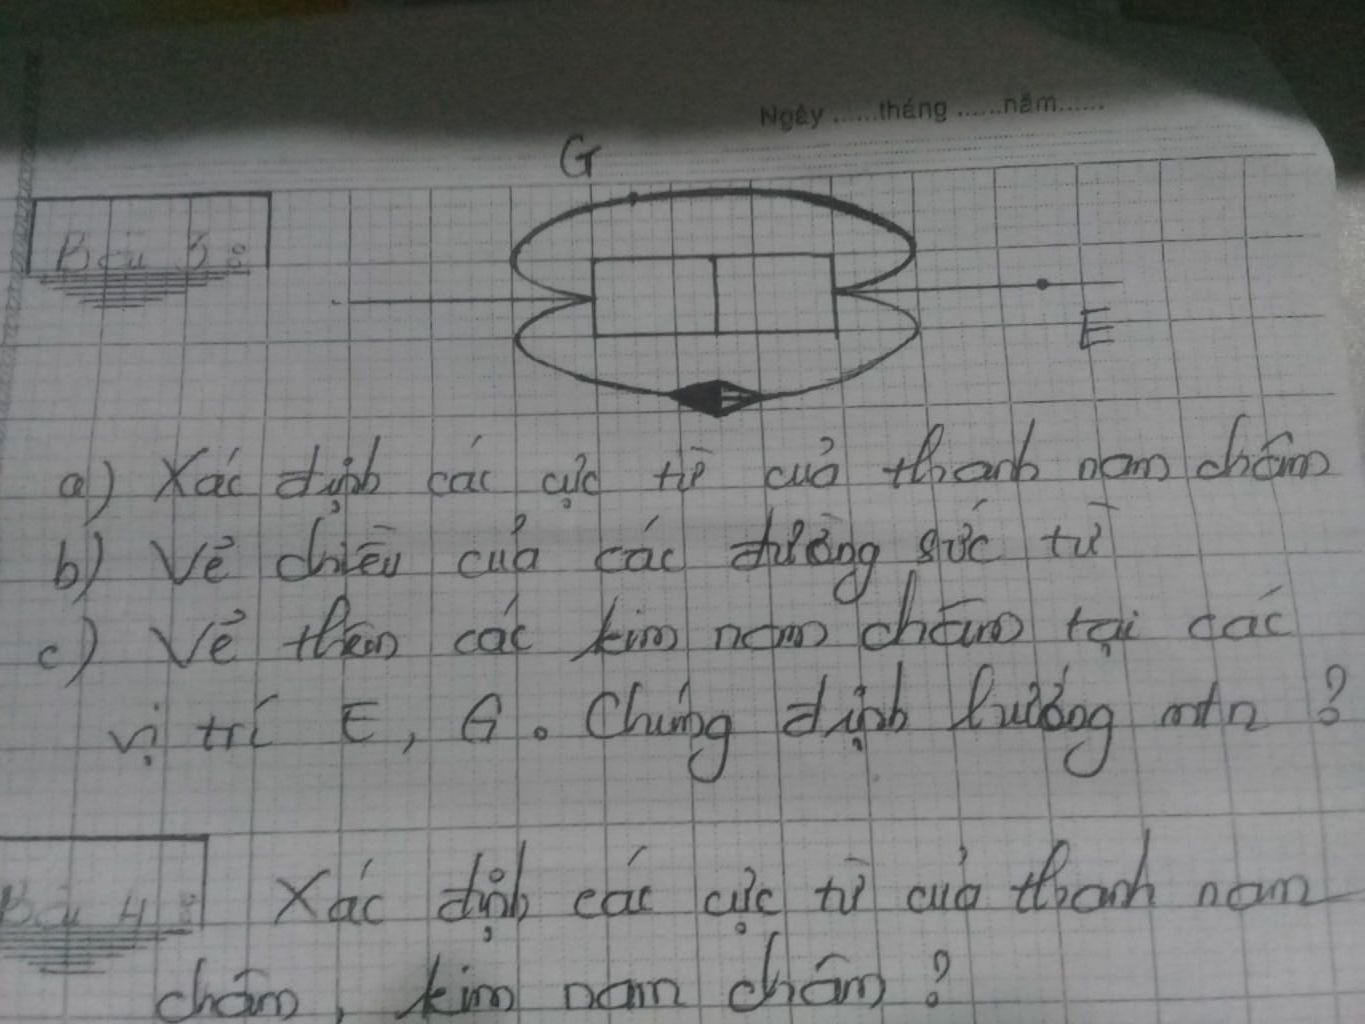 Ngày ......tháng ......năm......
G
Bài 3:
E
a) Xác định các cực từ của thanh nam châm
b) Vẽ chiều của các đường sức từ
c) Vẽ thêm các kim nam châm tại các
vị trí E, G. Chúng định hướng ntn?
Bài 4:
Xác định các cực từ của thanh nam
châm, kim nam châm?